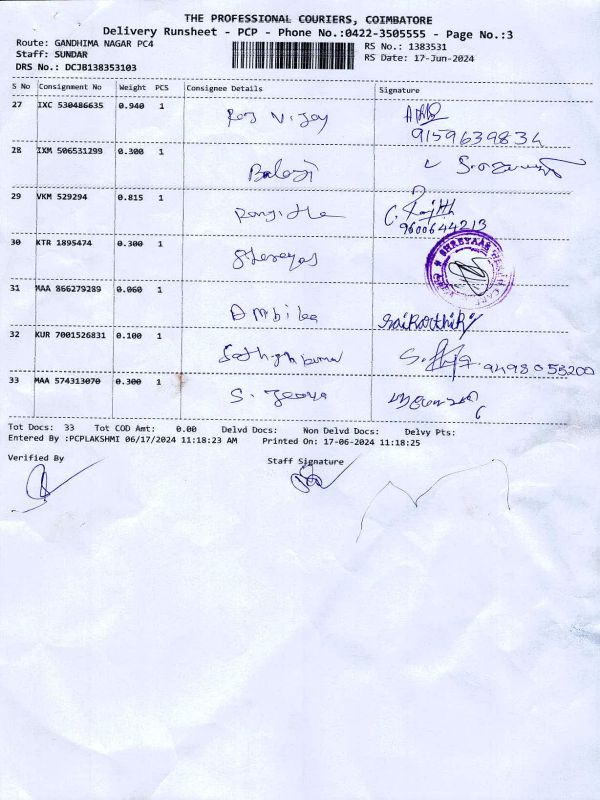 THE PROFESSIONAL COURIERS, COIMBATORE
Delivery Runsheet - PCP - Phone No.:0422-3505555 - Page No.:3
Route: GANDHIMA NAGAR PC4 RS No.: 1383531
Staff: SUNDAR RS Date: 17-Jun-2024
DRS No.: DCJB138353103
S No Consignment No Weight PCS Consignee Details Signature
27 IXC 530486635 0.940 1 Raj Vijay
9159639834
28 IXM 506531299 0.300 1 Balaji
29 VKM 529294 0.815 1 Ranjitha C. Rajith
9600644213
30 KTR 1895474 0.300 1 Shreyas
SHREYAAS HEALTH CARE
31 MAA 866279289 0.060 1 Ambika
32 KUR 7001526831 0.100 1 9498053200
33 MAA 574313070 0.300 1 S. Jeeva
Tot Docs: 33 Tot COD Amt: 0.00 Delvd Docs: Non Delvd Docs: Delvy Pts:
Entered By :PCPLAKSHMI 06/17/2024 11:18:23 AM Printed On: 17-06-2024 11:18:25
Verified By Staff Signature